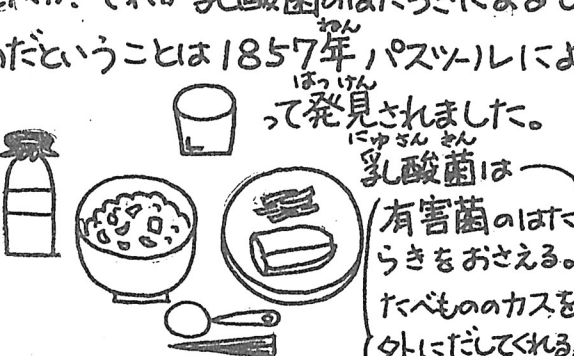 乳酸菌のはたらきによるもの
だということは1857年パスツールによ
ねん
はっけん
って発見されました。
にゅうさんきん
乳酸菌は
有害菌のはた
らきをおさえる。
たべもののカスを
外にだしてくれる